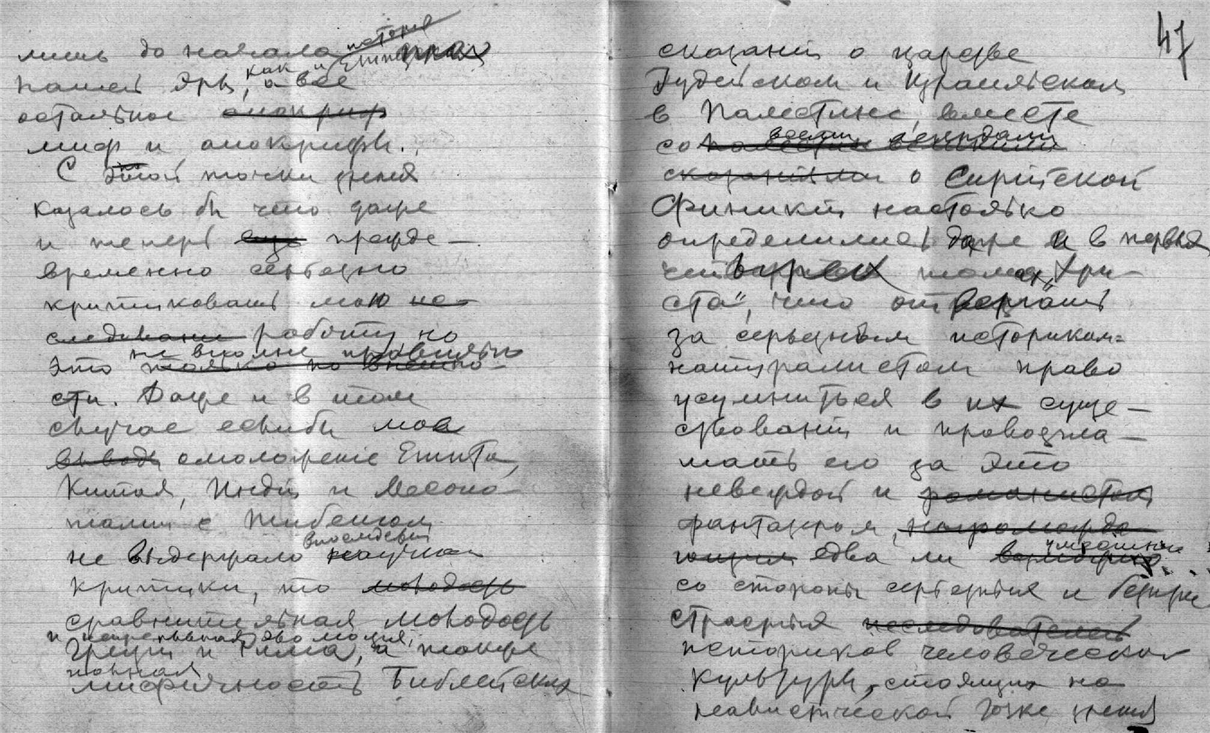 лишь до начала
история
нашей эры, как и Египта, а все
остальное апокриф
миф и апокрифы.
С этой точки зрения
казалось бы что даже
и теперь еще прежде-
временно серьезно
критиковать мою ис-
следование работу но
не вполне правильно
это только по внешно-
сти. Даже и в том
случае еслибы мое
выводы омоложение Египта,
Китая, Индии и Месопо-
тамии с Тибетом
впоследствии
не выдержало научной
критики, то молодость
сравнительная молодость
и непрерывная эволюция
Греции и Рима, а также
полная
мифичность Библейских
47
сказаний о царстве
Иудейском и Израильском
в Палестине вместе
всеми легендами
со
сказаниями о Сирийской
Финикии настолько
определились даже и в первых
четырех томах „Хри-
ста", что отвергать
за серьезным историком-
натуралистом право
усумниться в их суще-
ствовании и провозгла-
шать его за это
невеждой и романистом
фантазером, нагроможда-
ющим едва ли
уместно
со стороны серьезных и беспри
страстных исследователей
историков человеческой
культуры, стоящих на
реалистической точке зрения